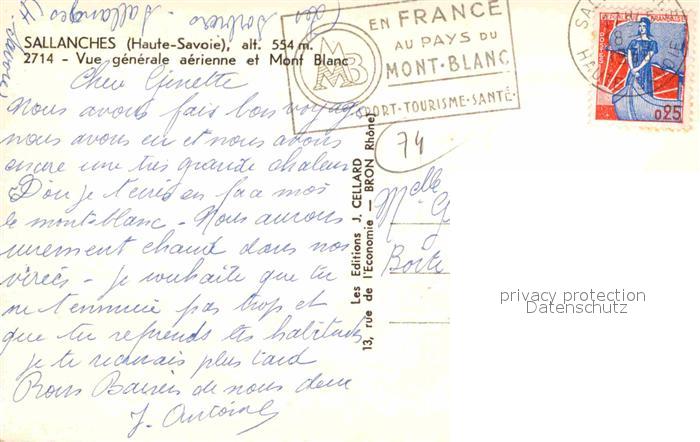 Les
Sallanches (H
Savoie)
SALLANCHES (Haute-Savoie), alt. 554 m.
2714 - Vue générale aérienne et Mont Blanc
Cher Ginette
Nous avons fait bon voyage
nous avons eu et nous avons
encore une très grande chaleur
D'ou je t'écris en face
le mont-blanc - Nous aurons
surement chaud dans nos
- je souhaite que tu
ne t'ennuie pas trop et
que tu reprends tes habitudes
je te plus tard
Bons Baisers de nous deux
J. Antoine
Les Editions J. CELLARD
13, rue de l'Economie — BRON (Rhône)
EN FRANCE
AU PAYS DU
MONT-BLANC
SPORT-TOURISME-SANTÉ
MB
74
0,25
Melle
G
Boite
privacy protection
Datenschutz